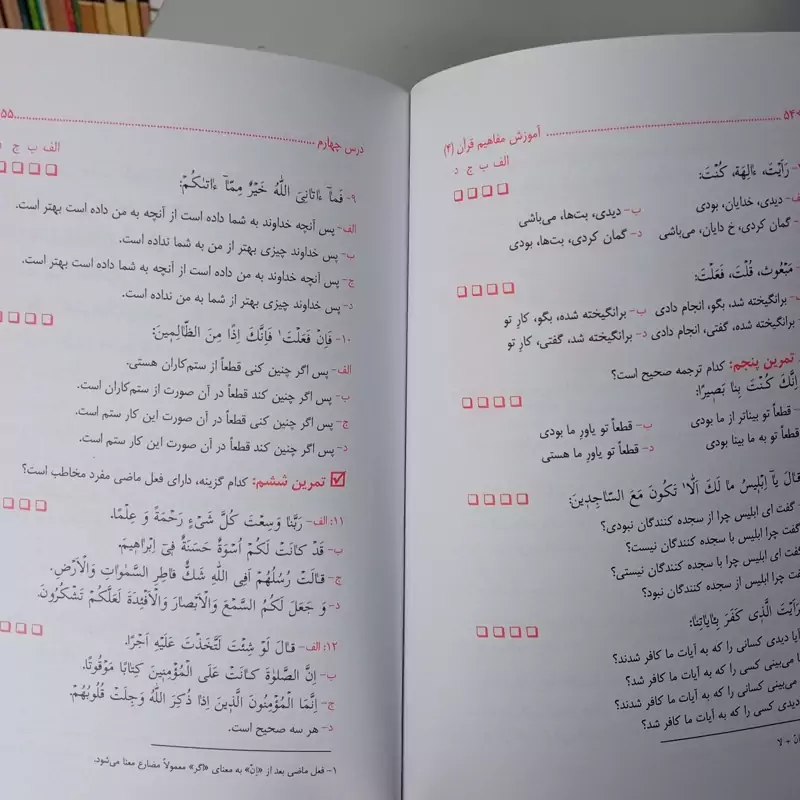 ۵۴ آموزش مفاهیم قرآن (۲)
الف ب ج د
رَأَیْتَ، ءٰالِهَة، کُنْتَ:
دیدی، خدایان، بودی ب- دیدی، بت‌ها، می‌باشی
گمان کردی، خ دایان، می‌باشی د- گمان کردی، بت‌ها، بودی
مَبْعُوث، قُلْتَ، فَعَلْتَ:
برانگیخته شد، بگو، انجام دادی ب- برانگیخته شده، بگو، کارِ تو
برانگیخته شده، گفتی، انجام دادی د- برانگیخته شد، گفتی، کارِ تو
تمرین پنجم: کدام ترجمه صحیح است؟
اِنَّکَ کُنْتَ بِنا بَصیرًا:
قطعاً تو بیناتر از ما بودی ب- قطعاً تو یاورِ ما بودی
قطعاً تو به ما بینا بودی د- قطعاً تو یاورِ ما هستی
قالَ یآ اِبْلیسُ ما لَکَ اَلّا تَکُونَ مَعَ السّاجِدینَ:
گفت ای ابلیس چرا از سجده کنندگان نبودی؟
گفت چرا ابلیس با سجده کنندگان نیست؟
گفت ای ابلیس چرا با سجده کنندگان نیستی؟
گفت چرا ابلیس از سجده کنندگان نبود؟
الَّذی کَفَرَ بِـٔایاتِنا:
دیدی کسانی را که به آیات ما کافر شدند؟
می‌بینی کسی را که به آیات ما کافر شد؟
می‌بینی کسانی را که به آیات ما کافر شدند؟
دیدی کسی را که به آیات ما کافر شد؟
درس چهارم ۵۵
الف ب ج
۹- فَمآ ءاتانِیَ اللّٰهُ خَیْرٌ مِمّآ ءاتٰکُمْ:
الف- پس آنچه خداوند به شما داده است از آنچه به من داده است بهتر است.
ب- پس خداوند چیزی بهتر از من به شما نداده است.
ج- پس آنچه خداوند به من داده است از آنچه به شما داده است بهتر است.
د- پس خداوند چیزی بهتر از شما به من نداده است.
۱۰- فَاِنْ فَعَلْتَ¹ فَاِنَّکَ اِذًا مِنَ الظّالِمینَ:
الف- پس اگر چنین کنی قطعاً از ستم‌کاران هستی.
ب- پس اگر چنین کند قطعاً در آن صورت از ستم‌کاران است.
ج- پس اگر چنین کنی قطعاً در آن صورت این کار ستم است.
د- پس اگر چنین کند قطعاً در آن صورت این کار ستم است.
تمرین ششم: کدام گزینه، دارای فعل ماضی مفرد مخاطب است؟
۱۱: الف- رَبَّنا وَسِعْتَ کُلَّ شَیْءٍ رَحْمَةً وَ عِلْمًا.
ب- قَدْ کانَتْ لَکُمْ اُسْوَةٌ حَسَنَةٌ فی اِبْراهیمَ.
ج- قالَتْ رُسُلُهُمْ اَفِی اللّٰهِ شَکٌّ فاطِرِ السَّمٰواتِ وَالْاَرْضِ.
د- وَ جَعَلَ لَکُمُ السَّمْعَ وَالْاَبْصارَ وَالْاَفْئِدَةَ لَعَلَّکُمْ تَشْکُرُونَ.
۱۲: الف- قالَ لَوْ شِئْتَ لَتَّخَذْتَ عَلَیْهِ اَجْرًا.
ب- اِنَّ الصَّلٰوةَ کانَتْ عَلَی الْمُؤْمِنینَ کِتابًا مَوْقُوتًا.
ج- اِنَّمَا الْمُؤْمِنُونَ الَّذینَ اِذا ذُکِرَ اللّٰهُ وَجِلَتْ قُلُوبُهُمْ.
د- هر سه صحیح است.
۱- فعل ماضی بعد از «اِنْ» به معنای «اگر» معمولاً مضارع معنا می‌شود.